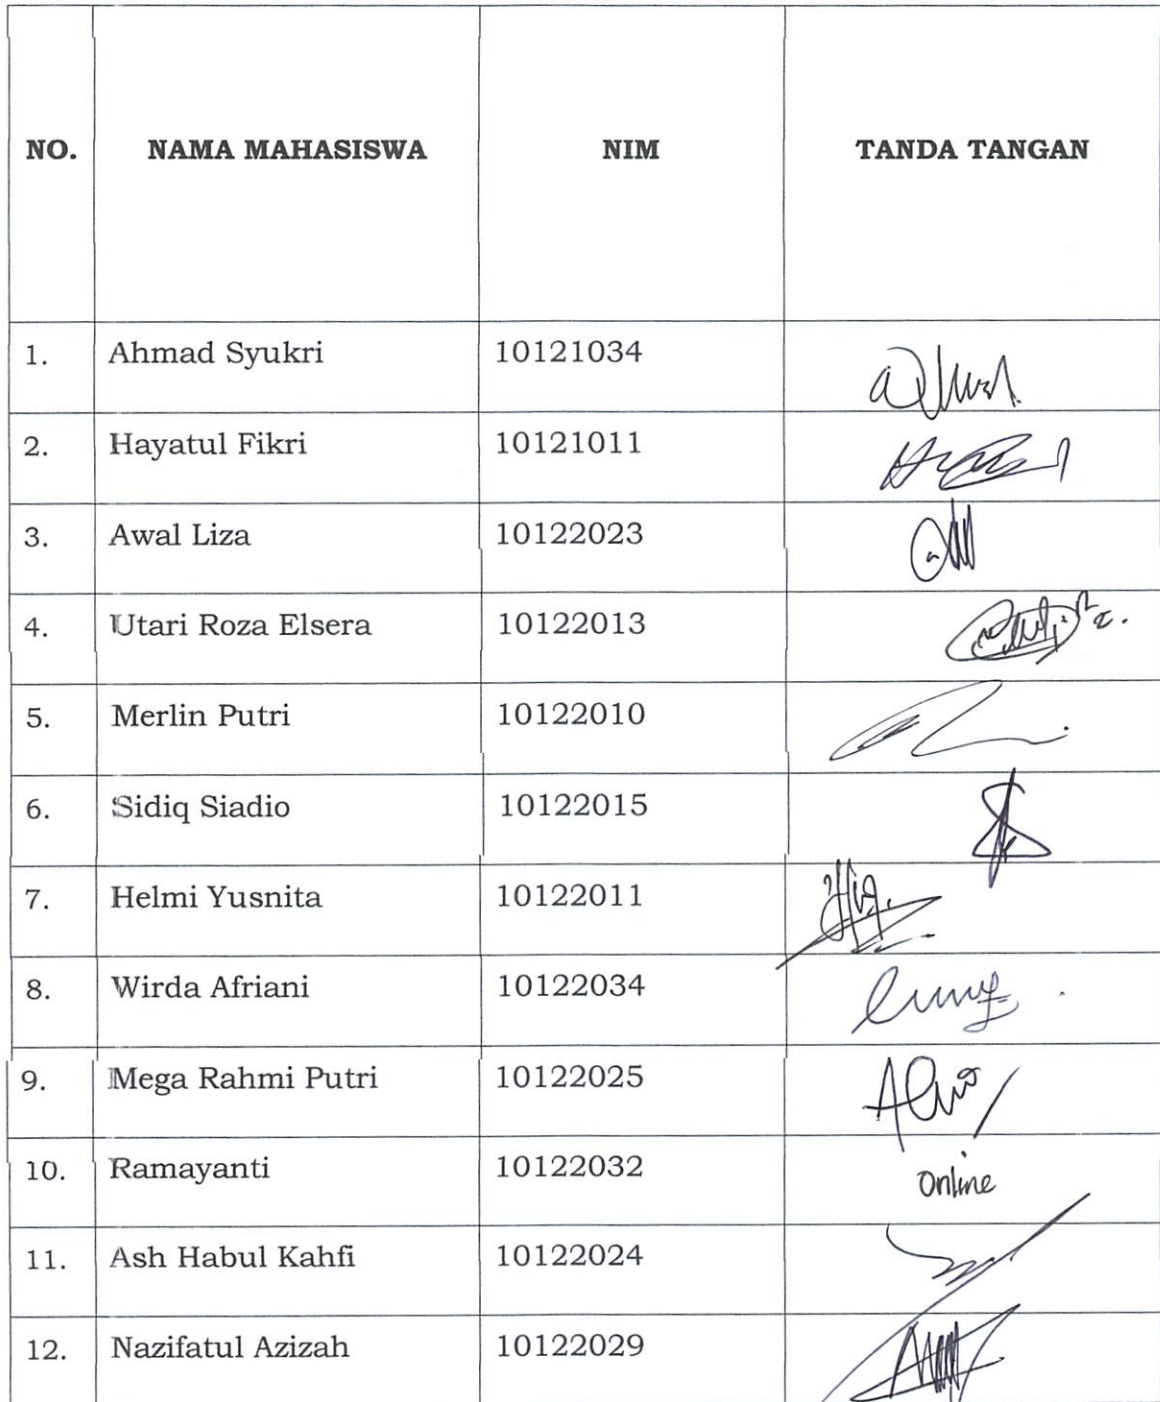 NO. NAMA MAHASISWA NIM TANDA TANGAN
1. Ahmad Syukri 10121034
2. Hayatul Fikri 10121011
3. Awal Liza 10122023
4. Utari Roza Elsera 10122013
5. Merlin Putri 10122010
6. Sidiq Siadio 10122015
7. Helmi Yusnita 10122011
8. Wirda Afriani 10122034
9. Mega Rahmi Putri 10122025
10. Ramayanti 10122032 Online
11. Ash Habul Kahfi 10122024
12. Nazifatul Azizah 10122029